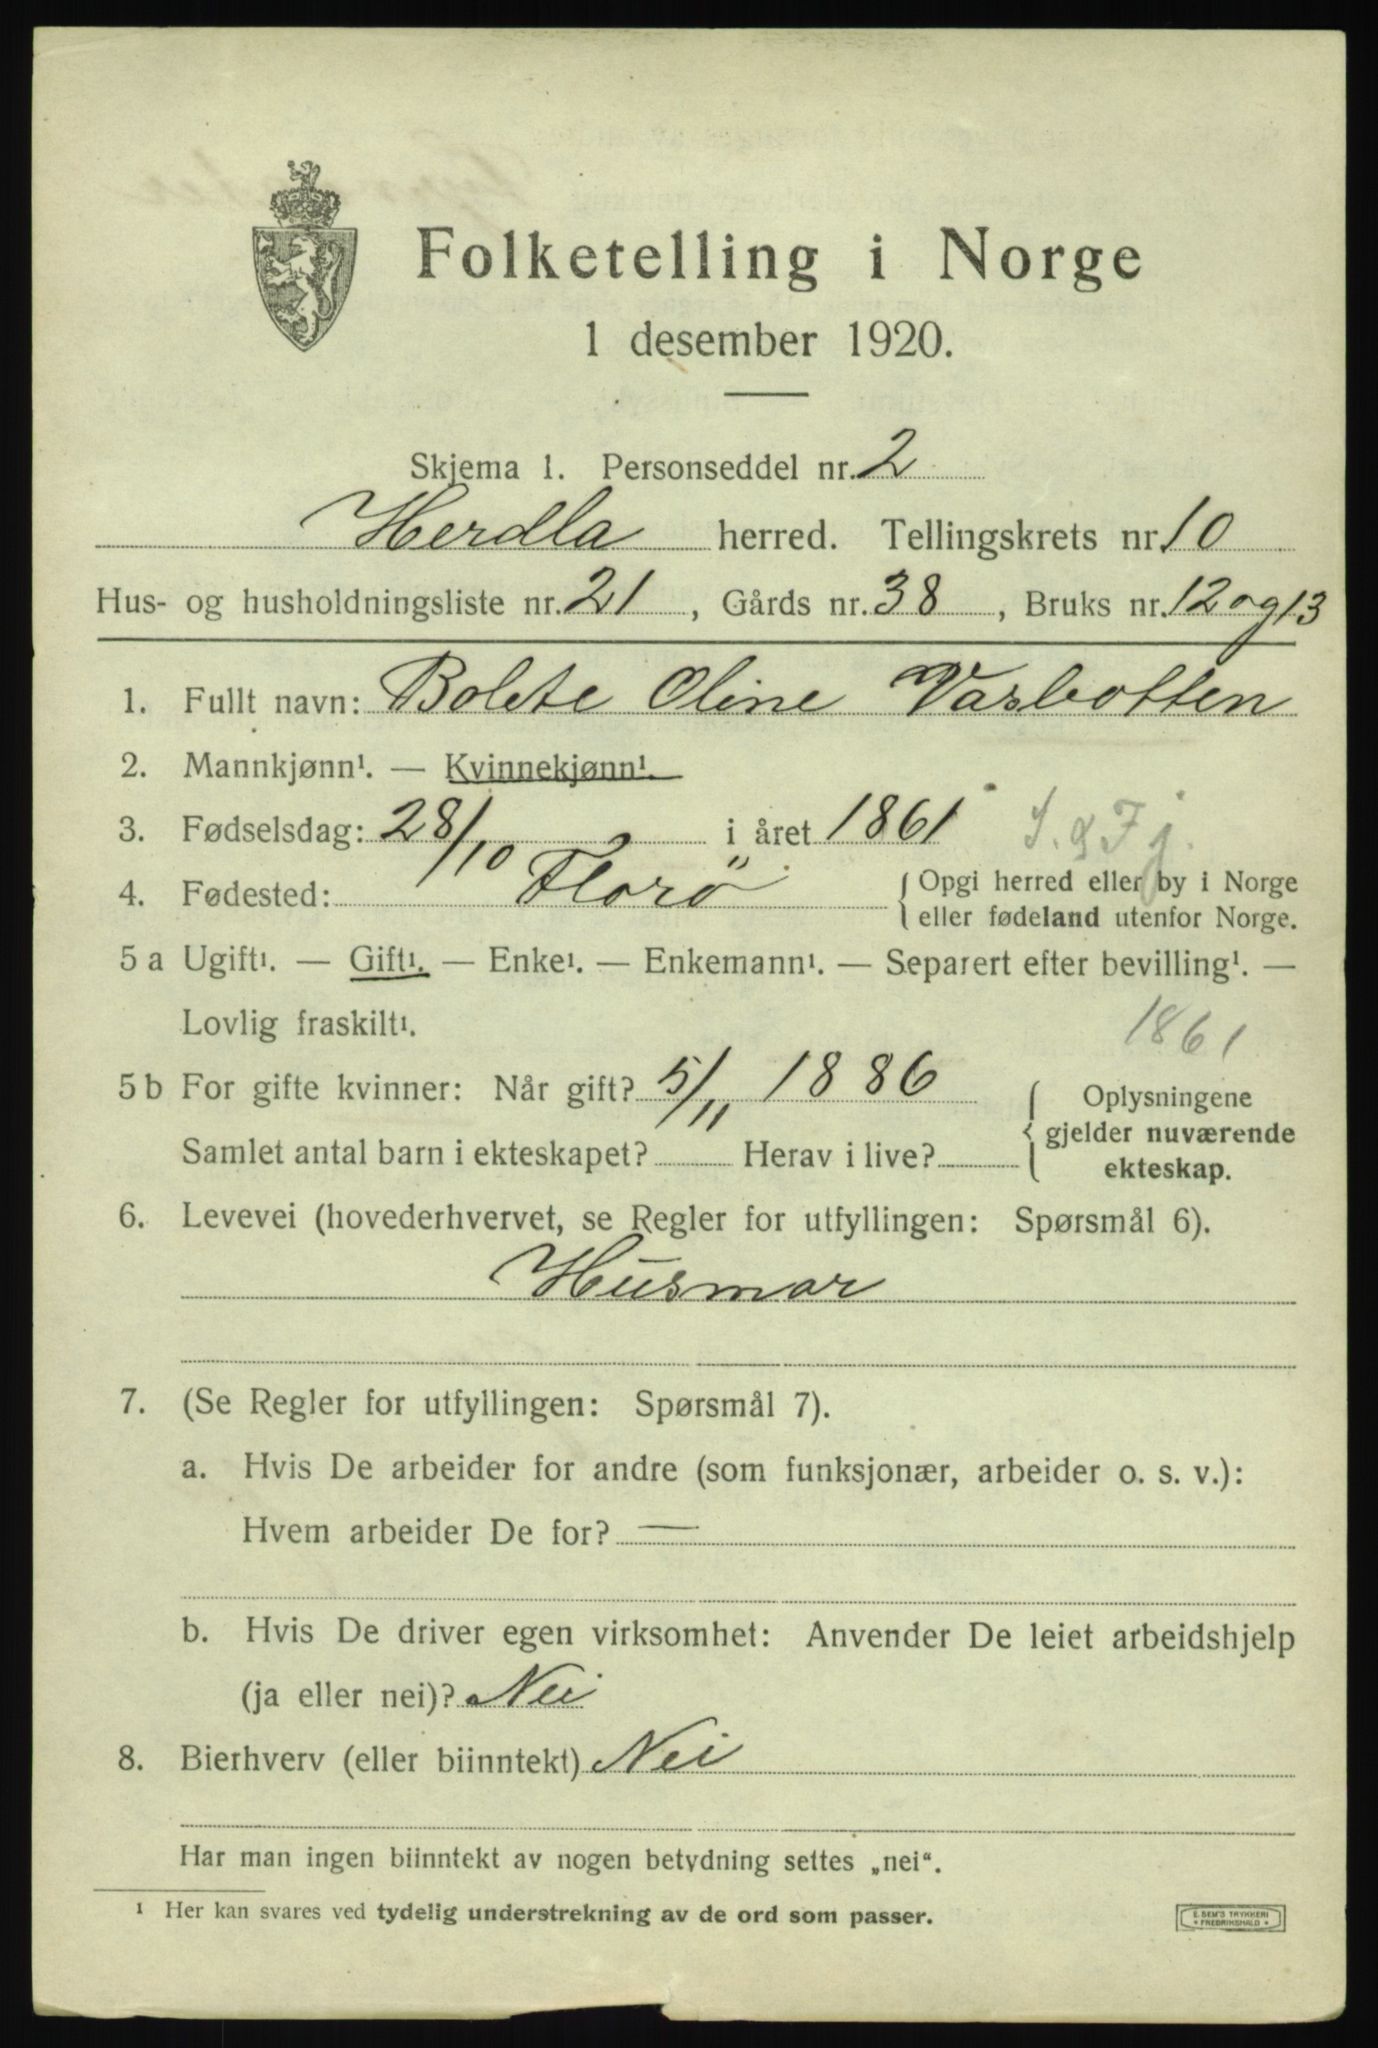 Folketelling i Norge
1 desember 1920.
Skjema 1. Personseddel nr. 2
Herdla herred. Tellingskrets nr. 10
Hus- og husholdningsliste nr. 21, Gårds nr. 38, Bruks nr. 12 og 13
1. Fullt navn: Bolete Oline Vasbotten
2. Mannkjønn¹. — Kvinnekjønn¹.
3. Fødselsdag: 28/10 i året 1861 S. g Fj.
4. Fødested: Florø { Opgi herred eller by i Norge
eller fødeland utenfor Norge.
5 a Ugift¹. — Gift¹. — Enke¹. — Enkemann¹. — Separert efter bevilling¹. —
Lovlig fraskilt¹. 1861
5 b For gifte kvinner: Når gift? 5/11 1886 { Oplysningene
gjelder nuværende
Samlet antal barn i ekteskapet? Herav i live?
ekteskap.
6. Levevei (hovederhvervet, se Regler for utfyllingen: Spørsmål 6).
Husmor
7. (Se Regler for utfyllingen: Spørsmål 7).
a. Hvis De arbeider for andre (som funksjonær, arbeider o. s. v.):
Hvem arbeider De for? —
b. Hvis De driver egen virksomhet: Anvender De leiet arbeidshjelp
(ja eller nei)? Nei
8. Bierhverv (eller biinntekt) Nei
Har man ingen biinntekt av nogen betydning settes „nei“.
¹ Her kan svares ved tydelig understrekning av de ord som passer.
E. SEM'S TRYKKERI
* FREDRIKSHALD *